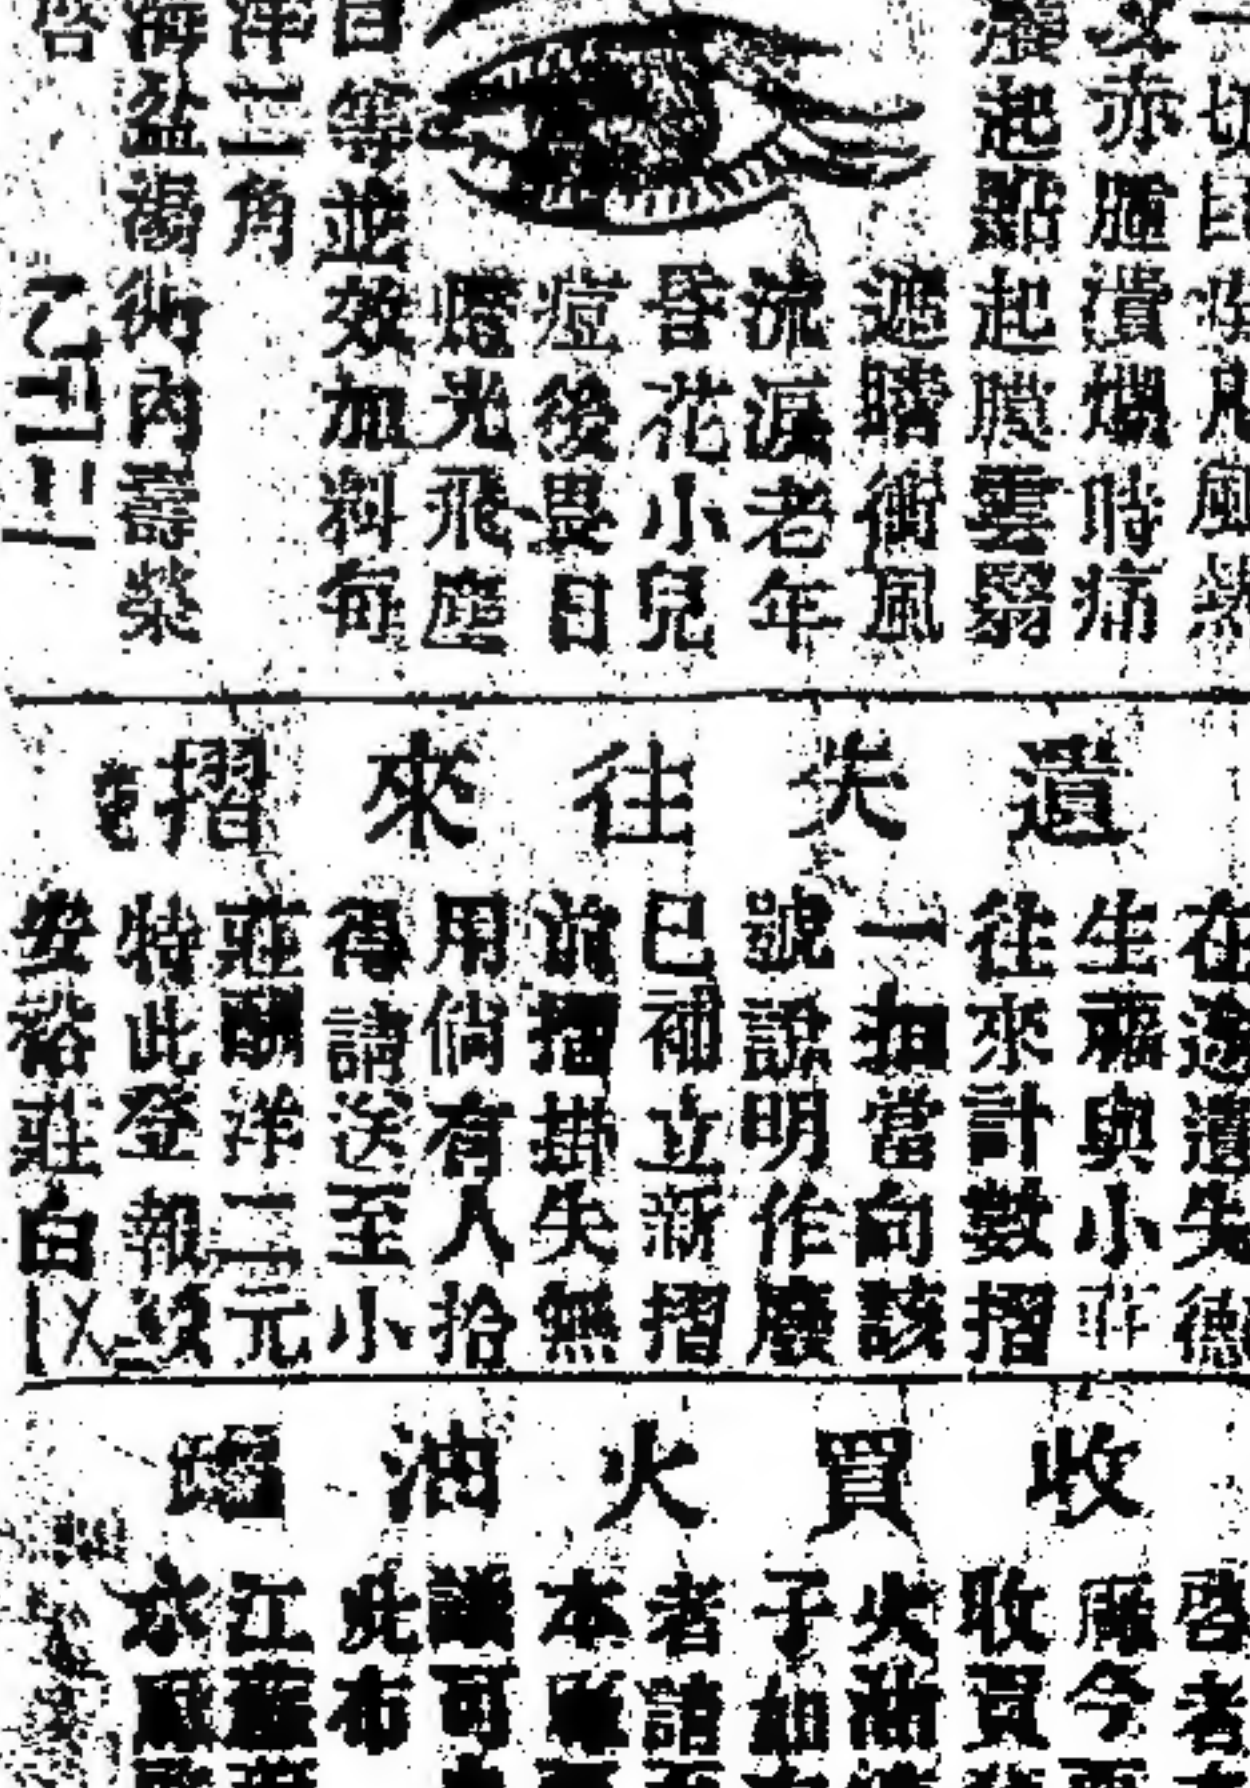 一切目疾凡風熱
赤腫潰爛時痛
起點起膜雲翳
遮睛衝風
流淚老年
昏花小兒
痘後畏日
燈光飛塵
目等並效加料每
洋二角
海盆湯衖內壽榮
啓
遺失往來摺
在途遺失德
生福與小莊
往來計數摺
一扣當向該
號說明作廢
已補立新摺
前摺掛失無
用倘有人拾
得請送至小
莊酬洋二元
特此登報
安裕莊白
收買火油
啓者
廠今
收買
火油
子如
者請
本廠
議可
此布
江蘇